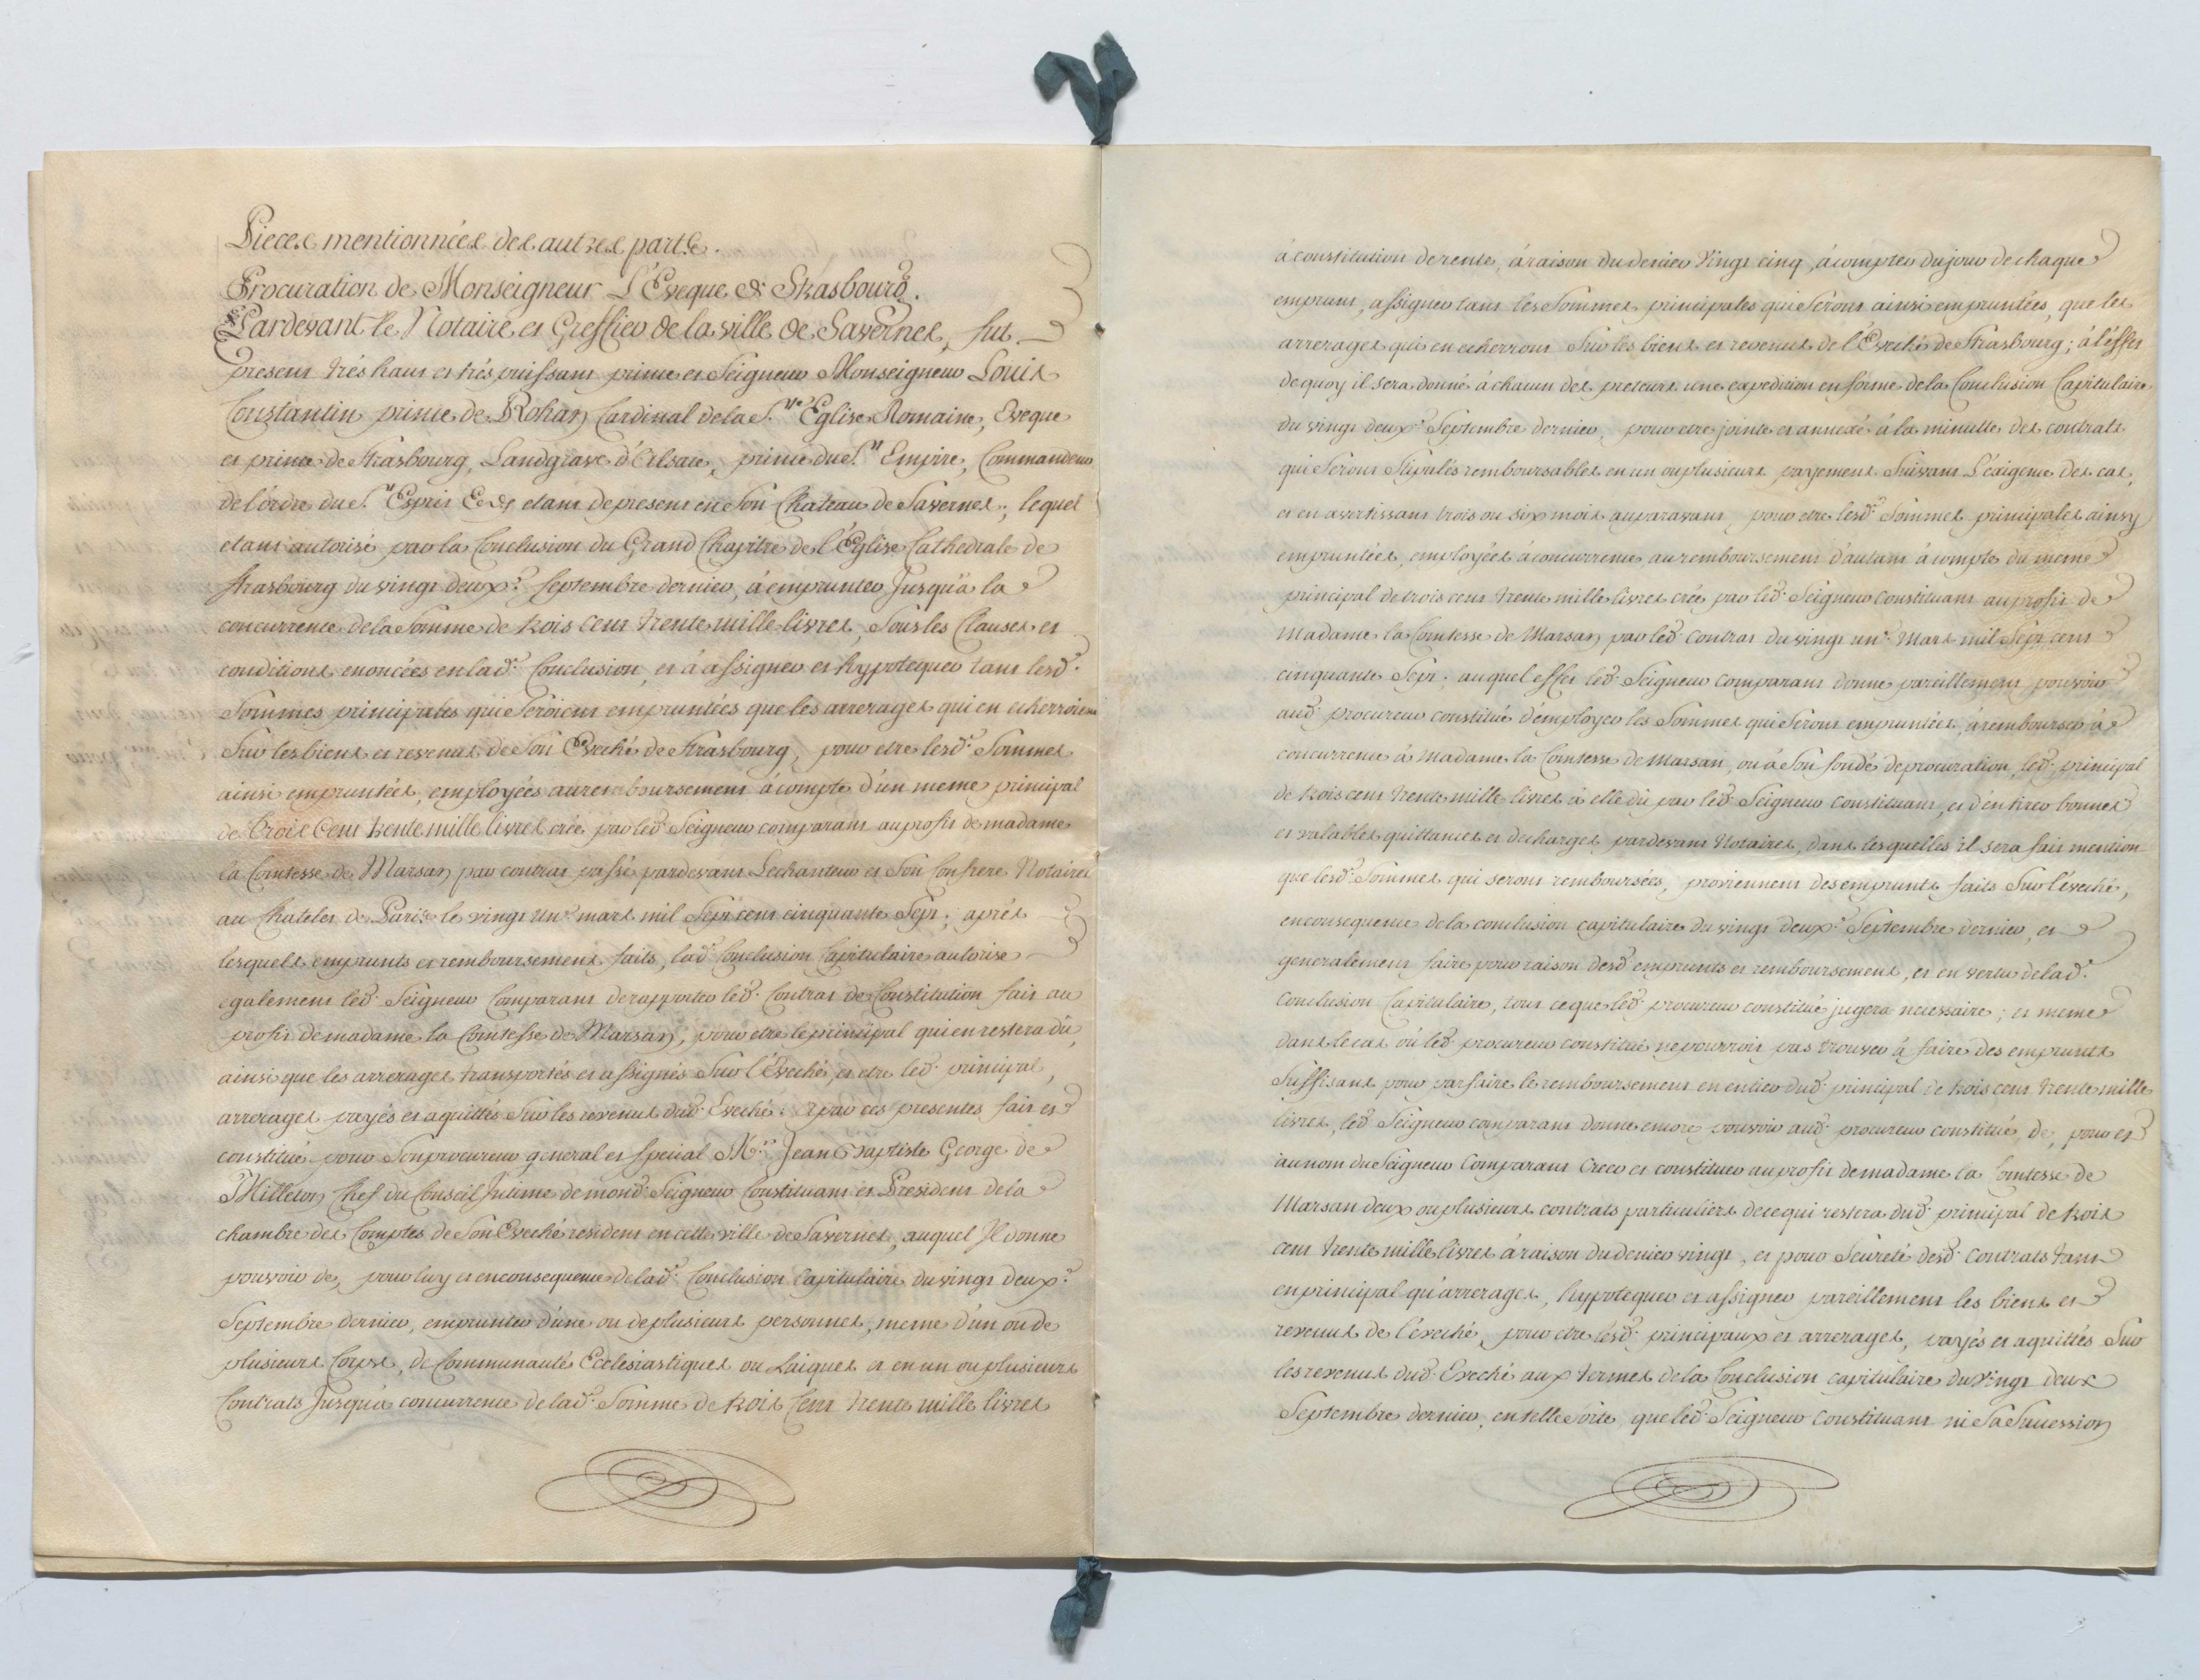 Pieces mentionnées des autres parts.
Procuration de Monseigneur L'Eveque de Strasbourg.
Pardevant le Notaire et Greffier de la ville de Savernes, fut
present trés haut et trés puissant prince et Seigneur Monseigneur Louis
Constantin prince de Rohan Cardinal de la S.te Eglise Romaine, Eveque
et prince de Strasbourg, Landgrave d'Alsace, prince du S.t Empire, Commandeur
de l'ordre du S.t Esprit &c.&c. etant de present en Son Chateau de Savernes; lequel
etant autorisé par la Conclusion du Grand Chapitre de l'Eglise Cathedrale de
Strasbourg du vingt deux.e Septembre dernier, à emprunter Jusqu'à la
concurrence de la Somme de trois cent trente mille livres, Sous les Clauses et
conditions enoncées en lad.e Conclusion, et à assigner et hypotequer tant lesd.
Sommes principales qui Seroient empruntées que les arrerages qui en echerroient
Sur les biens et revenus de Son Eveché de Strasbourg, pour etre lesd.es Sommes
ainsi empruntées, employées au remboursement à compte d'un meme principal
de Trois Cent trente mille livres créé par led. Seigneur comparant au profit de madame
la Comtesse de Marsan par contrat passé pardevant Lechanteur et Son Confrere Notaires
au Chatelet de Paris le vingt un.e mars mil Sept cent cinquante Sept; aprés
lesquels emprunts et remboursement faits, lad.e Conclusion Capitulaire autorise
egalement led. Seigneur Comparant de rapporter led. Contrat de Constitution fait au
profit de madame la Comtesse de Marsan, pour etre le principal qui en restera dû,
ainsi que les arrerages transportés et assignés Sur l'Eveché, et etre led. principal,
arrerages payés et aquittés Sur les revenus dud. Eveché: a par ces presentes fait et
constitué pour Son procureur general et special M.re Jean Baptiste George de
Milleton Chef du Conseil Intime de mond. Seigneur Constituant et President de la
chambre des Comptes de Son Eveché resident en cette ville de Savernes, auquel Il donne
pouvoir de, pour luy et en consequence de lad.e Conclusion Capitulaire du vingt deux.e
Septembre dernier, emprunter d'une ou de plusieurs personnes, meme d'un ou de
plusieurs Corps, de Communauté Ecclesiastiques ou Laiques et en un ou plusieurs
Contrats Jusqu'à concurrence de lad.e Somme de trois Cent trente mille livres
à constitution de rente, à raison du denier Vingt cinq, à compter du jour de chaque
emprunt, assigner tant les Sommes principales qui Seront ainsi empruntées, que les
arrerages qui en echerront Sur les biens et revenus de l'Eveché de Strasbourg; à l'effet
de quoy il sera donné à chacun des preteurs une expedition en forme de la Conclusion Capitulaire
du vingt deux.e Septembre dernier, pour etre jointe et annexée à la minutte des contrats
qui Seront Stipulés remboursables en un ou plusieurs payements Suivant L'exigence des cas,
et en avertissant trois ou six mois auparavant, pour etre lesd.es Sommes principales ainsy
empruntées, employées à concurrence au remboursement d'autant à compte du meme
principal de trois cent trente mille livres créé par led. Seigneur Constituant au profit de
Madame la Comtesse de Marsan par led. Contrat du vingt un.e Mars mil Sept cent
cinquante Sept; auquel effet led. Seigneur Comparant donne pareillement pouvoir
aud. procureur constitué d'employer les Sommes qui Seront empruntées, à rembourser à
concurrence à Madame la Comtesse de Marsan, ou à Son fondé de procuration, led. principal
de trois cent trente mille livres à elle dû par led. Seigneur Constituant, et d'en tirer bonnes
et valables quittances et decharges pardevant Notaires, dans lesquelles il sera fait mention
que lesd.es Sommes qui seront remboursées, proviennent des emprunts faits Sur l'eveché,
en consequence de la conclusion capitulaire du vingt deux.e Septembre dernier, et
generalement faire pour raison desd. emprunts et remboursement, et en vertu de lad.e
Conclusion Capitulaire, tout ce que led. procureur constitué jugera necessaire; et meme
dans le cas où led. procureur constitué ne pourroit pas trouver à faire des emprunts
Suffisants pour parfaire le remboursement en entier dud. principal de trois cent trente mille
livres, led. Seigneur comparant donne encore pouvoir aud. procureur constitué de, pour et
au nom du Seigneur Comparant Creer et constituer au profit de madame la Comtesse de
Marsan deux ou plusieurs contrats particuliers de ce qui restera dud. principal de trois
cent trente mille livres à raison du denier vingt, et pour Seureté desd. Contrats tant
en principal qu'arrerages, hypotequer et assigner pareillement les biens et
revenus de l'eveché, pour etre lesd. principaux et arrerages, payés et aquittés Sur
les revenus dud. Eveché aux termes de la Conclusion capitulaire du Vingt deux
Septembre dernier, en telle Sorte, que led. Seigneur Constituant ni Sa Succession